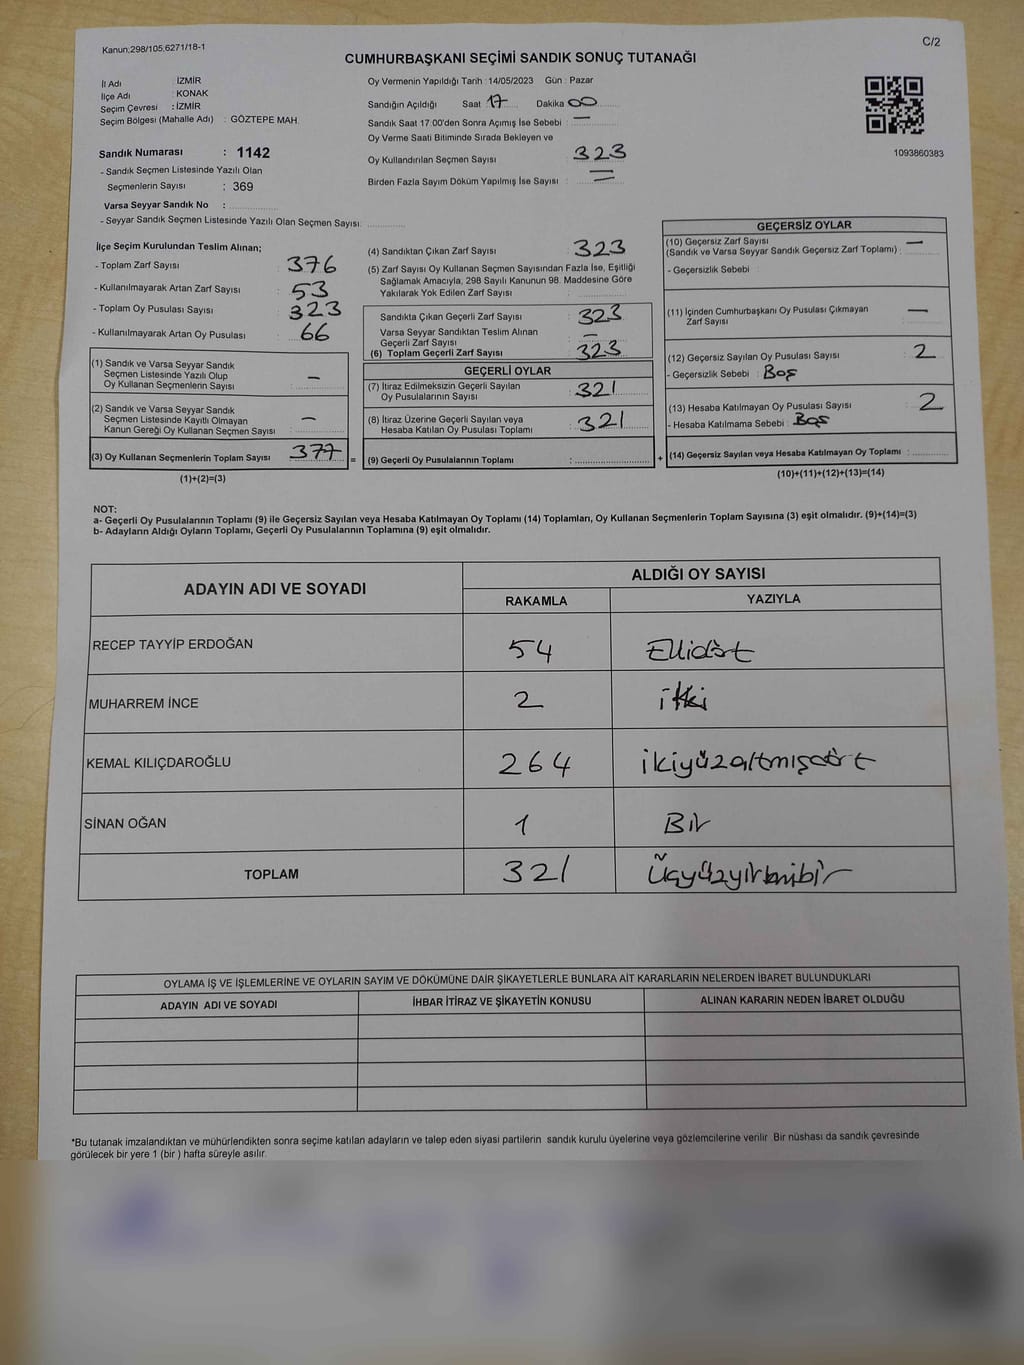 Kanun;298/105,6271/18-1
C/2
CUMHURBAŞKANI SEÇİMİ SANDIK SONUÇ TUTANAĞI
İl Adı : İZMİR
İlçe Adı : KONAK
Seçim Çevresi : İZMİR
Seçim Bölgesi (Mahalle Adı) : GÖZTEPE MAH.
Sandık Numarası : 1142
- Sandık Seçmen Listesinde Yazılı Olan
Seçmenlerin Sayısı : 369
Varsa Seyyar Sandık No :
- Seyyar Sandık Seçmen Listesinde Yazılı Olan Seçmen Sayısı:
Oy Vermenin Yapıldığı Tarih :14/05/2023 Gün : Pazar
Sandığın Açıldığı Saat 17 Dakika 00
Sandık Saat 17:00'den Sonra Açımış İse Sebebi : —
Oy Verme Saati Bitiminde Sırada Bekleyen ve
Oy Kullandırılan Seçmen Sayısı : 323
Birden Fazla Sayım Döküm Yapılmış İse Sayısı : =
1093860383
İlçe Seçim Kurulundan Teslim Alınan;
- Toplam Zarf Sayısı : 376
- Kullanılmayarak Artan Zarf Sayısı : 53
- Toplam Oy Pusulası Sayısı : 323
- Kullanılmayarak Artan Oy Pusulası : 66
(1) Sandık ve Varsa Seyyar Sandık
Seçmen Listesinde Yazılı Olup
Oy Kullanan Seçmenlerin Sayısı : –
(2) Sandık ve Varsa Seyyar Sandık
Seçmen Listesinde Kayıtlı Olmayan
Kanun Gereği Oy Kullanan Seçmen Sayısı : –
(3) Oy Kullanan Seçmenlerin Toplam Sayısı : 377 =
(1)+(2)=(3)
(4) Sandıktan Çıkan Zarf Sayısı : 323
(5) Zarf Sayısı Oy Kullanan Seçmen Sayısından Fazla İse, Eşitliği
Sağlamak Amacıyla, 298 Sayılı Kanunun 98. Maddesine Göre
Yakılarak Yok Edilen Zarf Sayısı :
Sandıkta Çıkan Geçerli Zarf Sayısı : 323
Varsa Seyyar Sandıktan Teslim Alınan
Geçerli Zarf Sayısı :
(6) Toplam Geçerli Zarf Sayısı : 323
GEÇERLİ OYLAR
(7) İtiraz Edilmeksizin Geçerli Sayılan
Oy Pusulalarının Sayısı : 321
(8) İtiraz Üzerine Geçerli Sayılan veya
Hesaba Katılan Oy Pusulası Toplamı : 321
(9) Geçerli Oy Pusulalarının Toplamı : +
GEÇERSİZ OYLAR
(10) Geçersiz Zarf Sayısı
(Sandık ve Varsa Seyyar Sandık Geçersiz Zarf Toplamı) : —
- Geçersizlik Sebebi :
(11) İçinden Cumhurbaşkanı Oy Pusulası Çıkmayan
Zarf Sayısı : —
(12) Geçersiz Sayılan Oy Pusulası Sayısı : 2
- Geçersizlik Sebebi : Boş
(13) Hesaba Katılmayan Oy Pusulası Sayısı : 2
- Hesaba Katılmama Sebebi : Boş
(14) Geçersiz Sayılan veya Hesaba Katılmayan Oy Toplamı :
(10)+(11)+(12)+(13)=(14)
NOT:
a- Geçerli Oy Pusulalarının Toplamı (9) ile Geçersiz Sayılan veya Hesaba Katılmayan Oy Toplamı (14) Toplamları, Oy Kullanan Seçmenlerin Toplam Sayısına (3) eşit olmalıdır. (9)+(14)=(3)
b- Adayların Aldığı Oyların Toplamı, Geçerli Oy Pusulalarının Toplamına (9) eşit olmalıdır.
ADAYIN ADI VE SOYADI ALDIĞI OY SAYISI
RAKAMLA YAZIYLA
RECEP TAYYİP ERDOĞAN 54 Ellidört
MUHARREM İNCE 2 iki
KEMAL KILIÇDAROĞLU 264 ikiyüzaltmışdört
SİNAN OĞAN 1 Bir
TOPLAM 321 Üçyüzyirmibir
OYLAMA İŞ VE İŞLEMLERİNE VE OYLARIN SAYIM VE DÖKÜMÜNE DAİR ŞİKAYETLERLE BUNLARA AİT KARARLARIN NELERDEN İBARET BULUNDUKLARI
ADAYIN ADI VE SOYADI İHBAR İTİRAZ VE ŞİKAYETİN KONUSU ALINAN KARARIN NEDEN İBARET OLDUĞU
*Bu tutanak imzalandıktan ve mühürlendikten sonra seçime katılan adayların ve talep eden siyasi partilerin sandık kurulu üyelerine veya gözlemcilerine verilir. Bir nüshası da sandık çevresinde
görülecek bir yere 1 (bir ) hafta süreyle asılır.